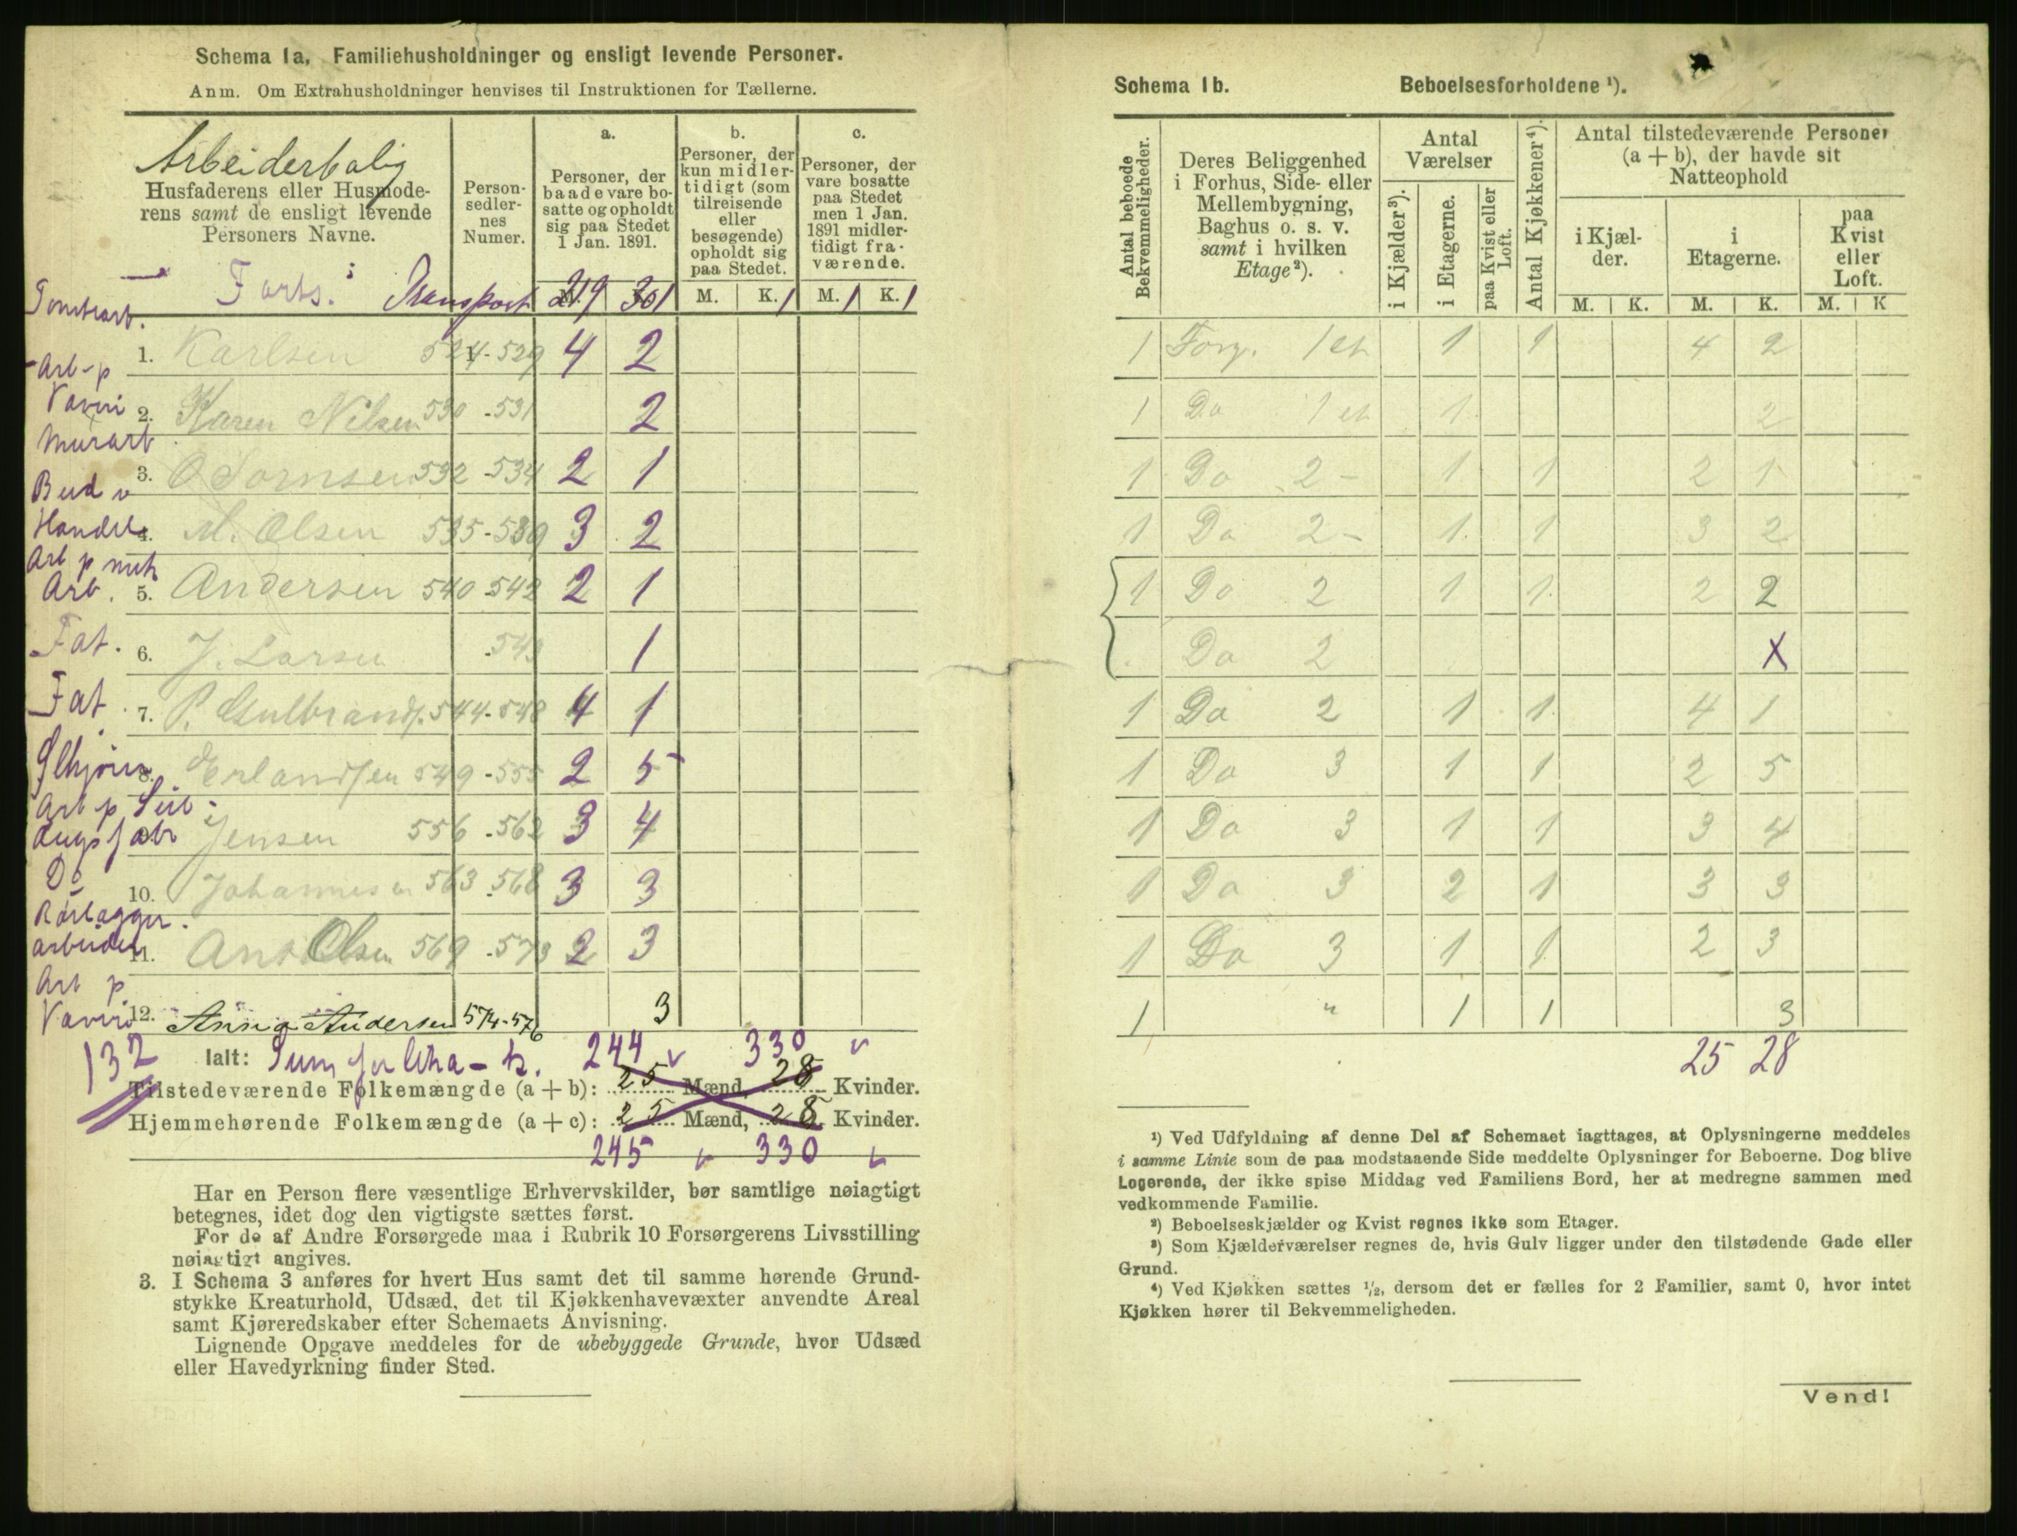 Schema 1a. Familiehusholdninger og ensligt levende Personer.
Anm. Om Extrahusholdninger henvises til Instruktionen for Tællerne.
Arbeiderbolig
Husfaderens eller Husmode-
rens samt de ensligt levende
Personers Navne.
Person-
sedler-
nes
Numer.
a.
Personer, der
baade vare bo-
satte og opholdt
sig paa Stedet
1 Jan. 1891.
b.
Personer, der
kun midler-
tidigt (som
tilreisende
eller
besøgende)
opholdt sig
paa Stedet.
c.
Personer, der
vare bosatte
paa Stedet
men 1 Jan.
1891 midler-
tidigt fra-
værende.
M. K. M. K. M. K.
Forts. Transport 219 301 1 1 1
1. Karlsen 524-529 4 2
Arb-p
2. Karen Nilsen 530-531 2
Murarb
3. 532-534 2 1
Bud v
Handel
4. M. Olsen 535-539 3 2
Arb p
Arb. 5. Andersen 540-542 2 1
Fat. 6. J. Larsen 543 1
Fat 7. P. Gulbrands. 544-548 4 1
8. Erlandsen 549-555 2 5
Arb p
9. Jensen 556-562 3 4
Do
10. Johannesen 563-568 3 3
Rørlægger
arbeider 11. Ant Olsen 569-573 2 3
Arb p
12. Anna Andersen 574-576 3
132
Ialt: Sum for 244 330
Tilstedeværende Folkemængde (a + b): 25 Mænd, 28 Kvinder.
Hjemmehørende Folkemængde (a + c): 25 Mænd, 28 Kvinder.
245 330
Har en Person flere væsentlige Erhvervskilder, bør samtlige nøiagtigt
betegnes, idet dog den vigtigste sættes først.
For de af Andre Forsørgede maa i Rubrik 10 Forsørgerens Livsstilling
nøiagtigt angives.
3. I Schema 3 anføres for hvert Hus samt det til samme hørende Grund-
stykke Kreaturhold, Udsæd, det til Kjøkkenhavevæxter anvendte Areal
samt Kjøreredskaber efter Schemaets Anvisning.
Lignende Opgave meddeles for de ubebyggede Grunde, hvor Udsæd
eller Havedyrkning finder Sted.
Schema 1b. Beboelsesforholdene ¹).
Antal beboede
Bekvemmeligheder.
Deres Beliggenhed
i Forhus, Side- eller
Mellembygning,
Baghus o. s. v.
samt i hvilken
Etage²).
Antal
Værelser
i Kjælder³).
i Etagerne.
paa Kvist eller
Loft.
Antal Kjøkkener⁴).
Antal tilstedeværende Personer
(a + b), der havde sit
Natteophold
i Kjæl-
der.
i
Etagerne.
paa
Kvist
eller
Loft.
M. K. M. K. M. K
1 Forg. 1 et 1 1 4 2
1 Do 1 et 1 2
1 Do 2 - 1 1 2 1
1 Do 2 - 1 1 3 2
1 Do 2 1 1 2 2
Do 2 X
1 Do 2 1 1 4 1
1 Do 3 1 1 2 5
1 Do 3 1 1 3 4
1 Do 3 2 1 3 3
1 Do 3 1 1 2 3
1 " 1 1 3
25 28
¹) Ved Udfyldning af denne Del af Schemaet iagttages, at Oplysningerne meddeles
i samme Linie som de paa modstaaende Side meddelte Oplysninger for Beboerne. Dog blive
Logerende, der ikke spise Middag ved Familiens Bord, her at medregne sammen med
vedkommende Familie.
²) Beboelseskjælder og Kvist regnes ikke som Etager.
³) Som Kjælderværelser regnes de, hvis Gulv ligger under den tilstødende Gade eller
Grund.
⁴) Ved Kjøkken sættes ¹/₂, dersom det er fælles for 2 Familier, samt 0, hvor intet
Kjøkken hører til Bekvemmeligheden.
Vend!